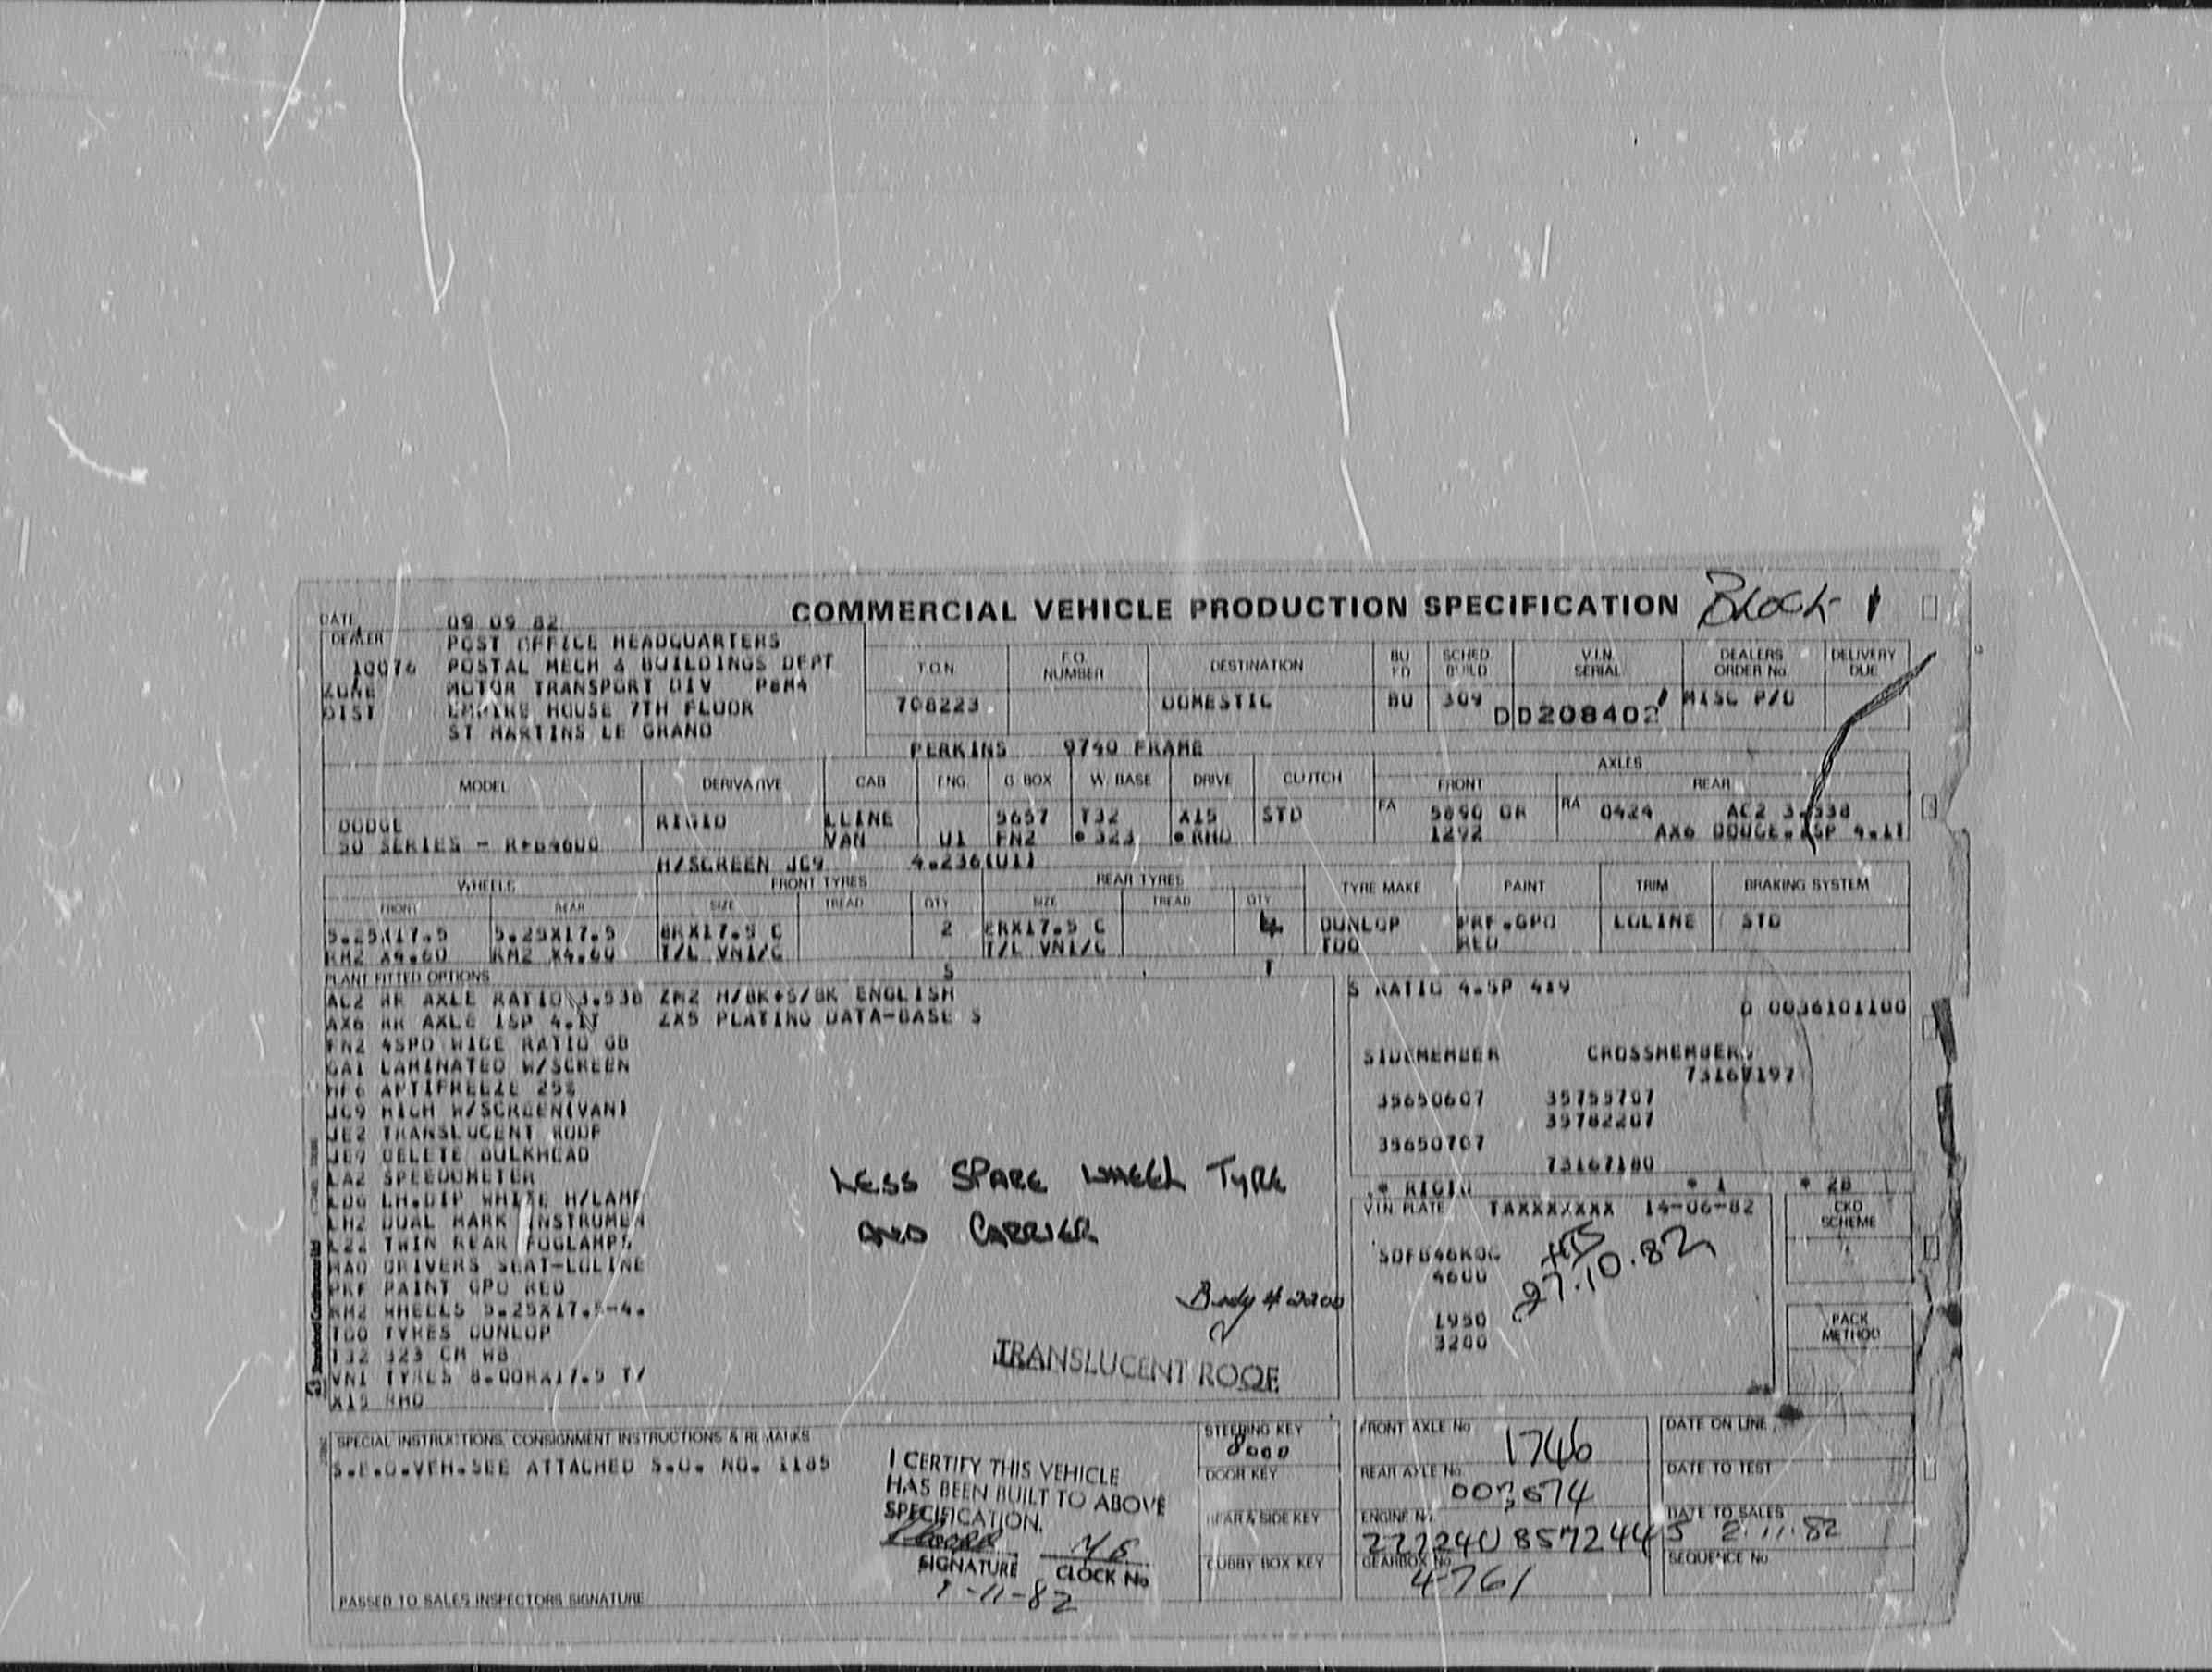 COMMERCIAL VEHICLE PRODUCTION SPECIFICATION Block 1
DATE 09 09 82
DEALER POST OFFICE HEADQUARTERS
10076 POSTAL MECH & BUILDINGS DEPT
ZONE MOTOR TRANSPORT DIV P8M4
DIST EMPIRE HOUSE 7TH FLOOR
ST MARTINS LE GRAND
T.O.N. F.O. NUMBER DESTINATION BU SCHED. BUILD V.I.N. SERIAL DEALERS ORDER No. DELIVERY DUE
708223 DOMESTIC BU 309 DD208402 MISC P/O
PERKINS 9740 FRAME
MODEL DERIVATIVE CAB ENG. G BOX W. BASE DRIVE CLUTCH AXLES
FRONT REAR
DODGE RIGID LLINE 5657 T32 X15 STD FA 5890 OR RA 0424 AC2 3.538
50 SERIES - VAN U1 FN2 * 323 * RHD 1292 AX6 DODGE.1SP 4.11
H/SCREEN JC9 4.236(U1)
WHEELS FRONT TYRES REAR TYRES TYRE MAKE PAINT TRIM BRAKING SYSTEM
FRONT REAR SIZE TREAD QTY SIZE TREAD QTY
5.25X17.5 5.25X17.5 8RX17.5 C 2 8RX17.5 C 4 DUNLOP PRF.GPO LOLINE STD
RM2 X4.60 RM2 X4.60 T/L VN1/C T/L VN1/C TDO RED
S T
PLANT FITTED OPTIONS
AC2 RR AXLE RATIO 3.538 ZM2 H/BK+S/BK ENGLISH
AX6 RR AXLE 1SP 4.11 ZX5 PLATING DATA-BASE S
FN2 4SPD WIDE RATIO GB
GA1 LAMINATED W/SCREEN
HF6 ANTIFREEZE 25%
JC9 HIGH W/SCREEN(VAN)
JE2 TRANSLUCENT ROOF
JE9 DELETE BULKHEAD
LA2 SPEEDOMETER
LD6 LH.DIP WHITE H/LAMP
LH2 DUAL MARK INSTRUMEN
LZ2 TWIN REAR FOGLAMPS
MAO DRIVERS SEAT-LOLINE
PRF PAINT GPO RED
RM2 WHEELS 5.25X17.5-4.
TDO TYRES DUNLOP
T32 323 CM WB
VN1 TYRES 8.00RX17.5 T/
X15 RHD
LESS SPARE WHEEL TYRE
AND CARRIER
Body # 2200
TRANSLUCENT ROOF
S RATIO 4.SP 419
0 0036101100
SIDEMEMBER CROSSMEMBERS
73167197
35650607 35755707
35782207
35650707
73167180
* RIGID * 1 * 28
VIN PLATE TAXXX/XXX 14-06-82
4600
27.10.82
1950
3200
CKD SCHEME
PACK METHOD
SPECIAL INSTRUCTIONS, CONSIGNMENT INSTRUCTIONS & REMARKS
S.E.O.VEH.SEE ATTACHED S.O. NO. 1185
I CERTIFY THIS VEHICLE
HAS BEEN BUILT TO ABOVE
SPECIFICATION.
SIGNATURE CLOCK No
1-11-82
PASSED TO SALES INSPECTORS SIGNATURE
STEERING KEY
DOOR KEY
REAR & SIDE KEY
CUBBY BOX KEY
FRONT AXLE No 1746
REAR AXLE No.
ENGINE No.
GEARBOX No. 4761
DATE ON LINE
DATE TO TEST
DATE TO SALES 2.11.82
SEQUENCE No.